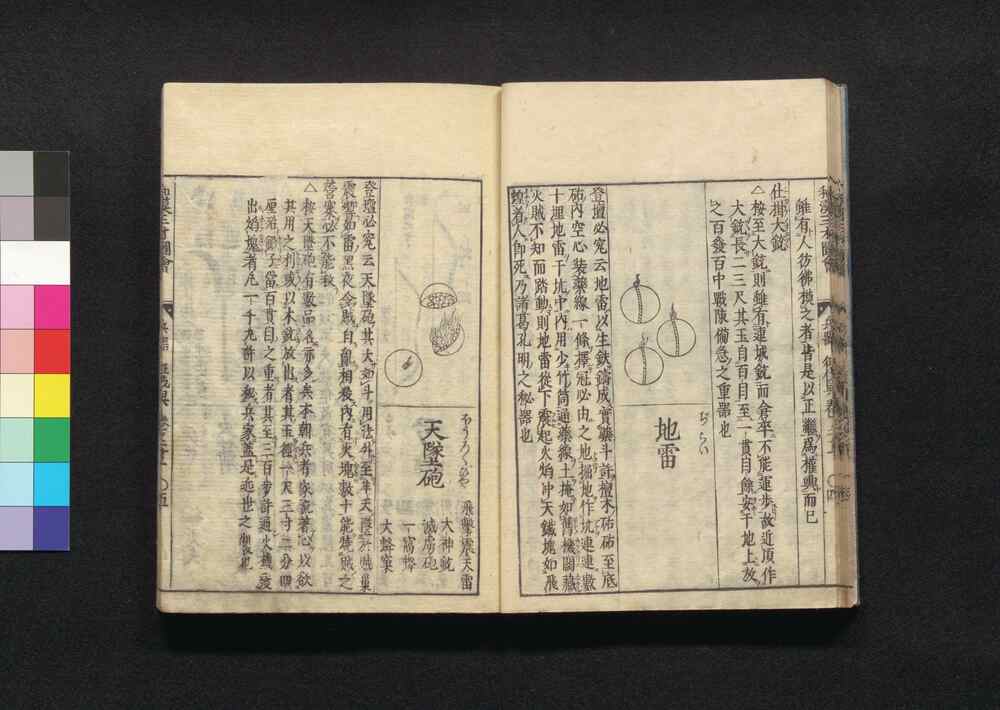 雖有人彷彿摸之者皆是以正繼爲權輿而已
仕掛大銃
△按至大銃則雖有連城銃而倉卒不能運歩故近頃作
大銃長二三尺其玉自百目至一貫目餘安于地上放
之百發百中戰陳備急之重器也
ぢらい
地雷
登壇必究云地雷以生鉄鑄成實藥斗許檀木砧砧至底
砧内空心裝藥線一條擇冦必由之地掘地作坑連連數
十埋地雷于坑中内用少竹筒通藥線土掩如舊機關藏
火賊不知而踏動則地雷從下震起火焰冲天鐵塊如飛
蝗着人即死乃諸葛孔明之秘器也
天墜砲
飛擊震天雷
大神銃
一窩蜂
登壇必究云天墜砲其大如斗用法升至半天墜於賊巢
震響如雷黒夜令賊自亂相殺内有火塊數十能燒賊之
營寨必不能救
△按天墜砲有數品名亦多矣本朝兵者家説著心以欲
其用之利或以木銃放出者其玉徑一尺三寸二分
出焰塊者凡一千九許以爲兵家
和漢三才圖會
兵器